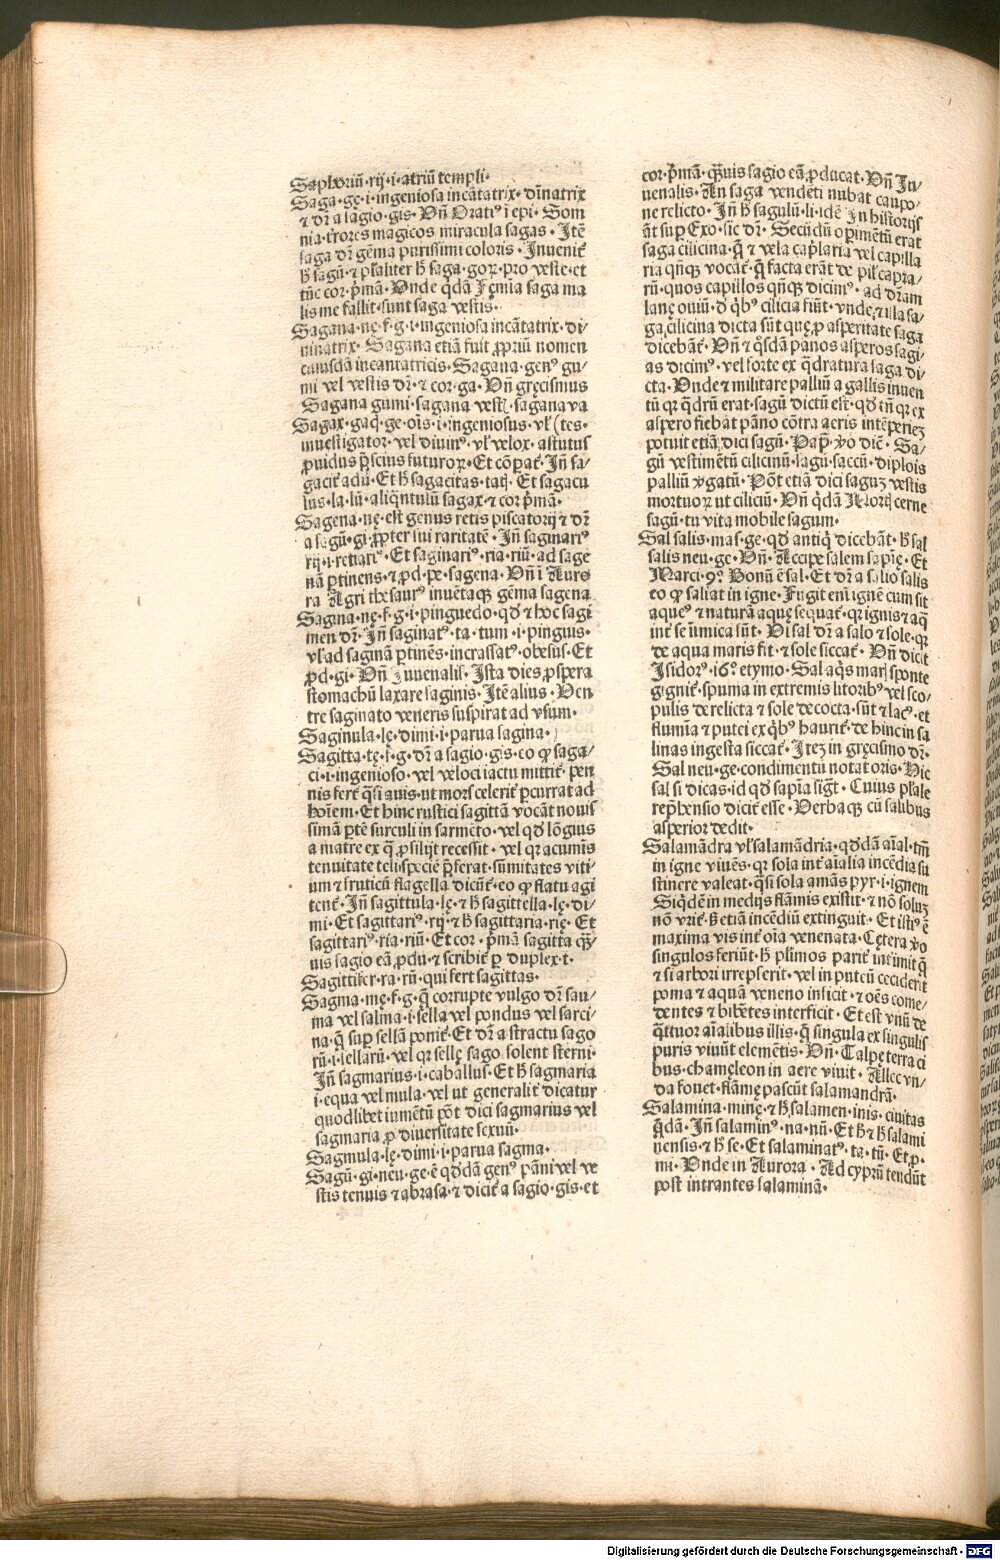 Saphoriū·rij·i·atriū templi·
Saga·gę·i·ingeniosa incātatrix·diuinatrix
⁊ dr̄ a sagio·gis·Vn̄ Oratiꝰ i epi·Som
nia·t̓rores magicos miracula sagas·Itē
saga dr̄ gēma purissimi coloris·Inuenit̄
h̓ sagū·⁊ pl̓aliter h̓ saga·goꝝ·pro veste·et
tūc cor·p̄mā·Vnde q̄dā saga ma
lis me fallit·sunt saga vestis·
Sagana·nę·f·g·i·ingeniosa incātatrix·di/
uinatrix·Sagana etiā fuit ꝓpriū nomen
cuiusdā incantatricis·Sagana·genꝰ gu/
mi vel vestis dr̄·⁊ cor·ga·Vn̄ gręcismus
Sagana gumi·sagana vest·sagana va
Sagax·gaq̇·ge·ois·i·ingeniosus·vl̓ (tes·
inuestigator·vel diuinꝰ·vl̓ velox·astutus
ꝓuidus p̄scius futuroꝝ·Et cōpat̄·In̄ sa/
gacit̄ adū·Et h̓ sagacitas·tatꝭ·Et sagacu
lus·la·lū·aliq̄ntulū sagax·⁊ cor p̄mā·
Sagena·nę·est genus retis piscatorij ⁊ dr̄
a sagū·gi·ꝓpter sui raritatē·In̄ saginariꝰ
rij·i·retiariꝰ·Et saginariꝰ·ria·riū·ad sage
nā ꝑtinens·⁊ ꝓd·pe·sagena·Vn̄ i Auro
ra Agri thesaurꝰ inuētaqꝫ gēma sagena
Sagina·nę·f·g·i·pinguedo·qd̓ ⁊ hoc sagi
men dr̄·In̄ saginatꝰ·ta·tum·i·pinguis·
vl̓ ad saginā ꝑtinēs·incrassatꝰ·obesus·Et
ꝓd·gi·Vn̄ Juuenalis·Ista dies ꝓspera
stomachū laxare saginis·Itē alius·Ven
tre saginato veneris suspirat ad vsum·
Saginula·lę·dimi·i·parua sagina·
Sagitta·tę·f·g·dr̄ a sagio·gis·eo ꝙ saga/
ci·i·ingenioso·vel veloci iactu mittit̄·pen
nis fert̄ q̄si auis·vt mors celerit̄ ꝑcurrat ad
hoīem·Et hinc rustici sagittā vocāt nouis
simā ꝑtē surculi in sarmēto·vel qd̓ lōgius
a matre ex q̄ ꝓsilijt recessit·vel qr acumīs
tenuitate teli speciē p̄ferat·sūmitates viti/
um ⁊ fruticū flagella dicūt̄·eo ꝙ flatu agi
tent̄·In̄ sagittula·lę·⁊ h̓ sagittella·lę·di/
mi·Et sagittariꝰ·rij·⁊ h̓ sagittaria·rię·Et
sagittariꝰ·ria·riū·Et cor·p̄mā sagitta q̄ꝫ/
uis sagio eā ꝓdu·⁊ scribit̄ ꝑ duplex·t·
Sagittifer·ra·rū·qui fert sagittas·
Sagma·mę·f·g·q̄ corrupte vulgo dr̄ sau/
ma vel salma·i·sella vel pondus vel sarci/
na·q̄ suꝑ sellā ponit̄·Et dr̄ a stractu sago
rū·i·sellarū·vel qr sellę sago solent sterni·
In̄ sagmarius·i·caballus·Et h̓ sagmaria
i·equa vel mula·vel ut generalit̄ dicatur
quodlibet iumētū pōt dici sagmarius vel
sagmaria ꝓ diuersitate sexuū·
Sagmula·lę·dimi·i·parua sagma·
Sagū·gi·neu·ge·ē qd̓dā genꝰ pāni vel ve
stis tenuis ⁊ abrasa·⁊ dicit̄ a sagio·gis·et
cor·p̄mā·q̄ꝫuis sagio eā ꝓducat·Vn̄ Ju/
uenalis·An saga vendēti nubat caupo/
ne relicto·In̄ h̓ sagulū·li·idē In historijs
āt suꝑ Exo·sic dr̄·Secūdū oꝑimētū erat
saga cilicina·q̄ ⁊ vela capl̓aria vel capilla
ria qn̄qꝫ vocat̄·q̄ facta erāt de pilꝭ capra/
rū·quos capillos qn̄qꝫ dicimꝰ·ad dr̄am
lanę ouiū·d̓ q̓bꝰ cilicia fiūt·vnde ⁊ illa sa/
ga cilicina dicta sūt quę ꝓ asperitate saga
dicebāt̄·Vn̄ ⁊ q̄sdā panos asperos sagi/
as dicimꝰ·vel forte ex q̄dratura saga di/
cta·Vnde ⁊ militare palliū a gallis inuen
tū qr q̄drū erat·sagū dictū est·qd̓ tn̄ qr ex
aspero fiebat pāno cōtra aeris intēperiez
potuit etiā dici sagū·Pap̄·ꝟo dic̄·Sa/
gū vestimētū cilicinū·sagū·saccū·diplois
palliū ꝟgatū·Pōt etiā dici saguꝫ vestis
mortuoꝝ ut ciliciū·Vn̄ q̄dā cerne
sagū·tu vita mobile sagum·
Sal salis·mas·ge·qd̓ antiq̇ dicebāt·h̓ sal
salis neu·ge·Vn̄·Accipe salem sapīę·Et
Marci·9º·Bonū ē sal·Et dr̄ a salio salis
eo ꝙ saliat in igne·Fugit eni ignē cum sit
aqueꝰ·⁊ naturā aquę sequat̄·qr ignis ⁊ aq̄
int̄ se inimica sūt·Vl sal dr̄ a salo ⁊ sole·qr
de aqua maris fit·⁊ sole siccat̄·Vn̄ dicit
Isidorꝰ·16º·etymo·Sal aq̄s marꝭ sponte
gignit̄·spuma in extremis litoribꝰ vel sco/
pulis derelicta ⁊ sole decocta·sūt ⁊ lacꝰ·et
flumīa ⁊ putei ex q̓bꝰ haurit̄·dehinc in sa
linas ingesta siccat̄·Itez in gręcismo dr̄·
Sal neu·ge·condimentū notat oris·Hic
sal si dicas·id qd̓ sapīa sigt̄·Cuius pl̓ale
rep̄hensio dicit̄ esse·Verbaqꝫ cū salibus
asperior dedit·
Salamādra vl̓ salamādria·qd̓dā aīal·tn̄
in igne viuēs·qr sola int̄ aīalia incēdia su
stinere valeat·q̄si sola amās pyr·i·ignem
Siqd̓ē in medijs flāmis existit·⁊ nō soluꝫ
nō vrit̄·s̓ etiā incēdiū extinguit·Et istiꝰ ē
maxima vis int̄ oīa venenata·Cętera ꝟo
singulos feriūt·h̓ pl̓imos parit̄ int̄imit q̄
⁊ si arbori irrepserit·vel in puteū ceciderit
poma ⁊ aquā veneno inficit·⁊ oēs come/
dentes ⁊ bibētes interficit·Et est vnū de
q̄ttuor aīalibus illis·q̄ singula ex singulis
puris viuūt elemētis·Vn̄·Talpę terra ci
bus·chamęleon in aere viuit·Allec vn/
da fouet·flāmę pascūt salamandrā·
Salamina·minę·⁊ h̓ salamen·inis·ciuitas
q̄dā·In̄ salaminꝰ·na·nū·Et h̓ ⁊ h̓ salami
nensis·⁊ h̓ se·Et salaminatꝰ·ta·tū·Et ꝓ·
mi·Vnde in Aurora·Ad cyprū tendūt
post intrantes salaminā·